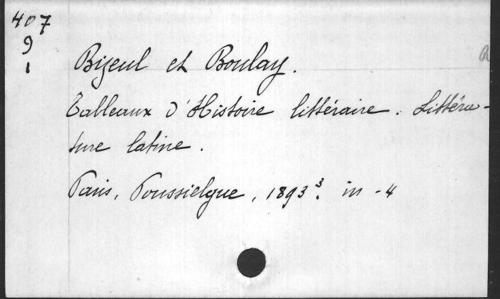 407
9
1
Bizeul et Boulay.
Tableaux d'Histoire littéraire. Littéra-
ture latine.
Paris, Poussielgue, 1893³. in-4